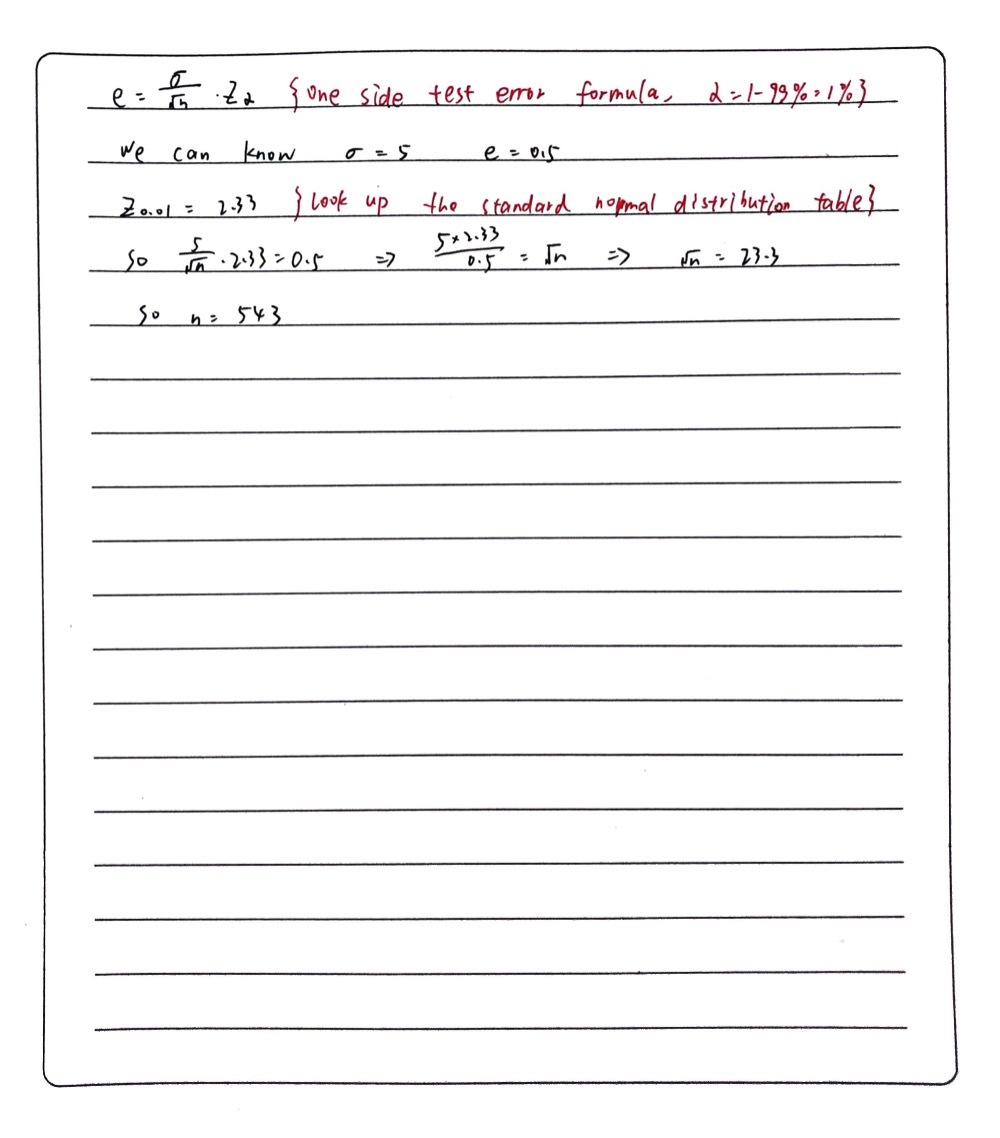 e = σ/√n · Zα {one side test error formula, α = 1 - 99% = 1%}
We can know σ = 5 e = 0.5
Z0.01 = 2.33 {Look up the standard normal distribution table}
So 5/√n · 2.33 = 0.5 => 5×2.33/0.5 = √n => √n = 23.3
So n = 543